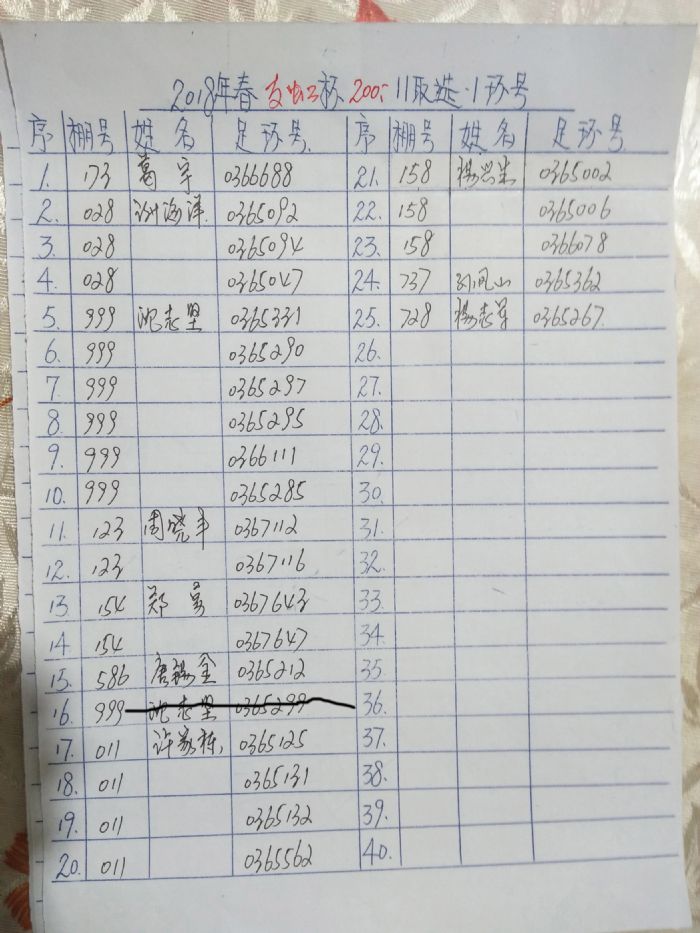 2018年春 杯 200: 11取选·1 环号
序 棚号 姓名 足环号. 序 棚号 姓名 足环号
1. 173 葛宇 0366688 21. 158 杨兴生 0365002
2. 028 谢海洋 0365092 22. 158 0365006
3. 028 0365094 23. 158 0366078
4. 028 0365047 24. 737 孙凤山 0365362
5. 999 沈志坚 0365331 25. 728 杨志军 0365267.
6. 999 0365290 26.
7. 999 0365297 27.
8. 999 0365295 28.
9. 999 0366111 29.
10. 999 0365285 30.
11. 123 周晓丰 0367112 31.
12. 123 0367116 32.
13 154 郑勇 0367643 33.
14. 154 0367647 34.
15. 586 唐锡金 0365212 35.
16. 999 沈志坚 0365299 36.
17. 011 许家栋. 0365125 37.
18. 011 0365131 38.
19. 011 0365132 39.
20. 011 0365562 40.